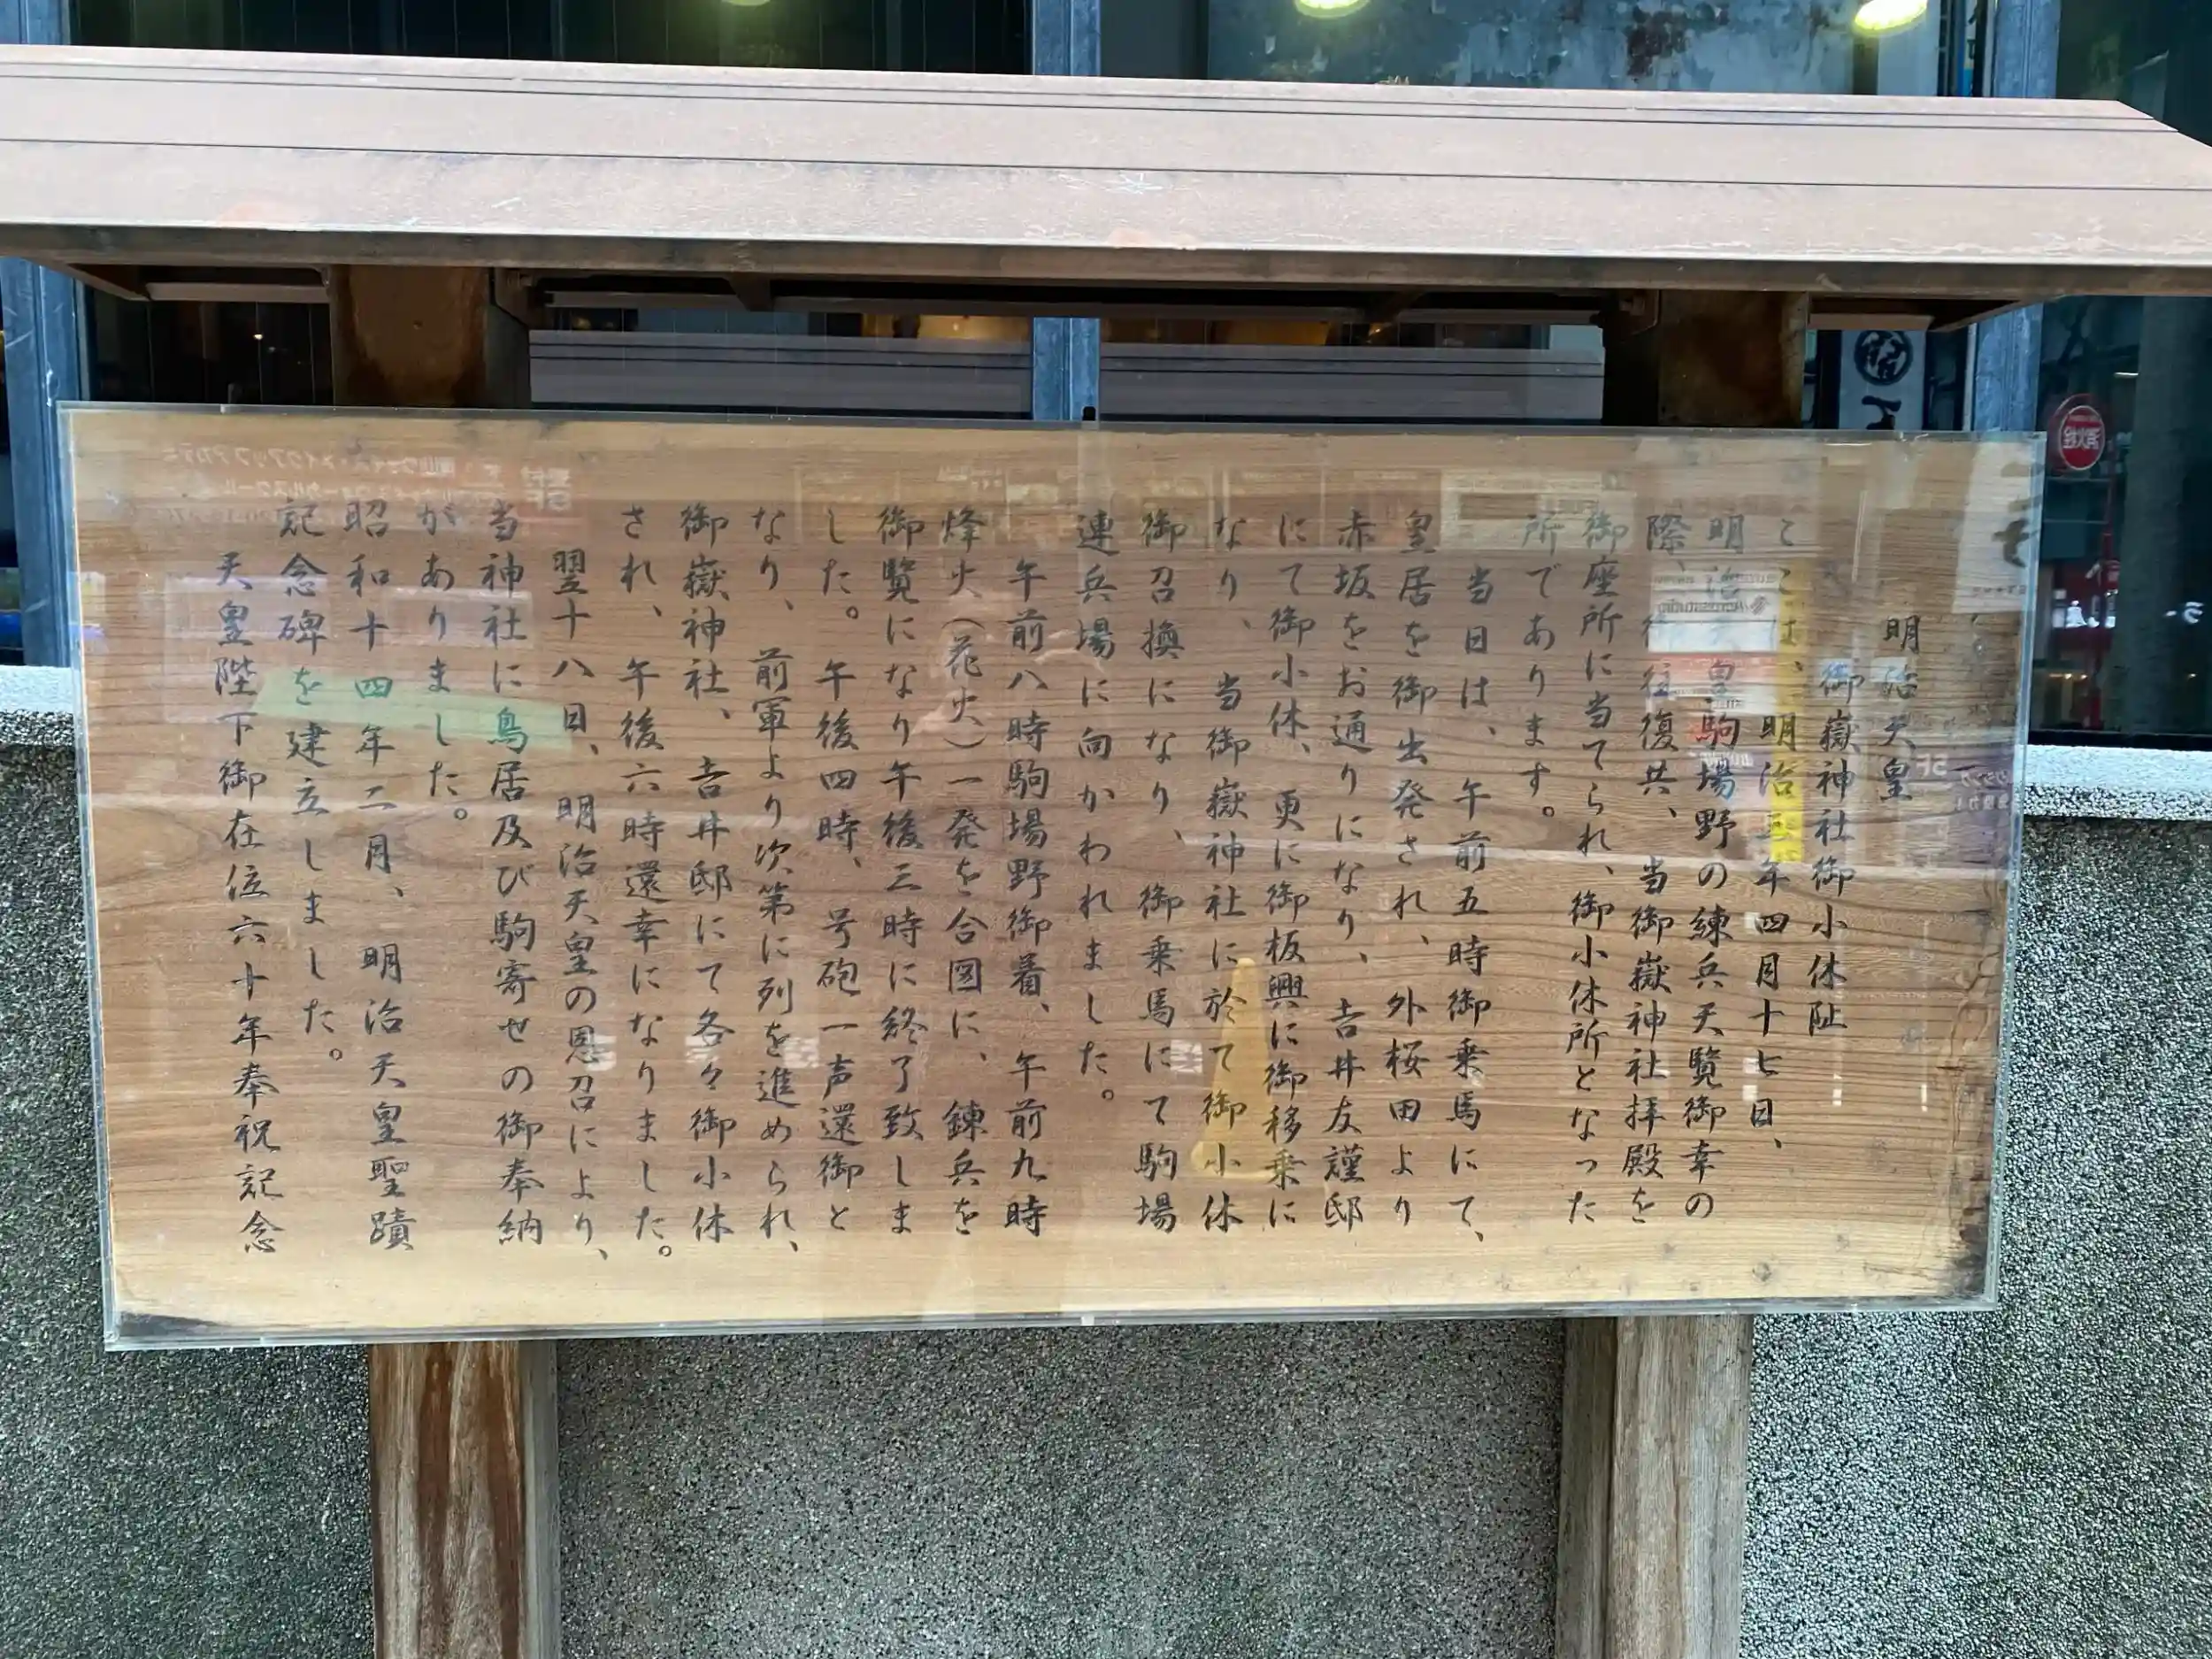 明治天皇
御嶽神社御小休阯
ここは、明治五年四月十七日、
明治天皇駒場野の練兵天覧御幸の
際、御往復共、当御嶽神社拝殿を
御座所に当てられ、御小休所となった
所であります。
当日は、午前五時御乗馬にて、
皇居を御出発され、外桜田より
赤坂をお通りになり、吉井友謹邸
にて御小休、更に御板輿に御移乗に
なり、当御嶽神社に於て御小休
御召換になり、御乗馬にて駒場
連兵場に向かわれました。
午前八時駒場野御着、午前九時
烽火（花火）一発を合図に、錬兵を
御覽になり午後三時に終了致しま
した。午後四時、号砲一声還御と
なり、前軍より次第に列を進められ、
御嶽神社、吉井邸にて各々御小休
され、午後六時還幸になりました。
翌十八日、明治天皇の恩召により、
当神社に鳥居及び駒寄せの御奉納
がありました。
昭和十四年二月、明治天皇聖蹟
記念碑を建立しました。
天皇陛下御在位六十年奉祝記念